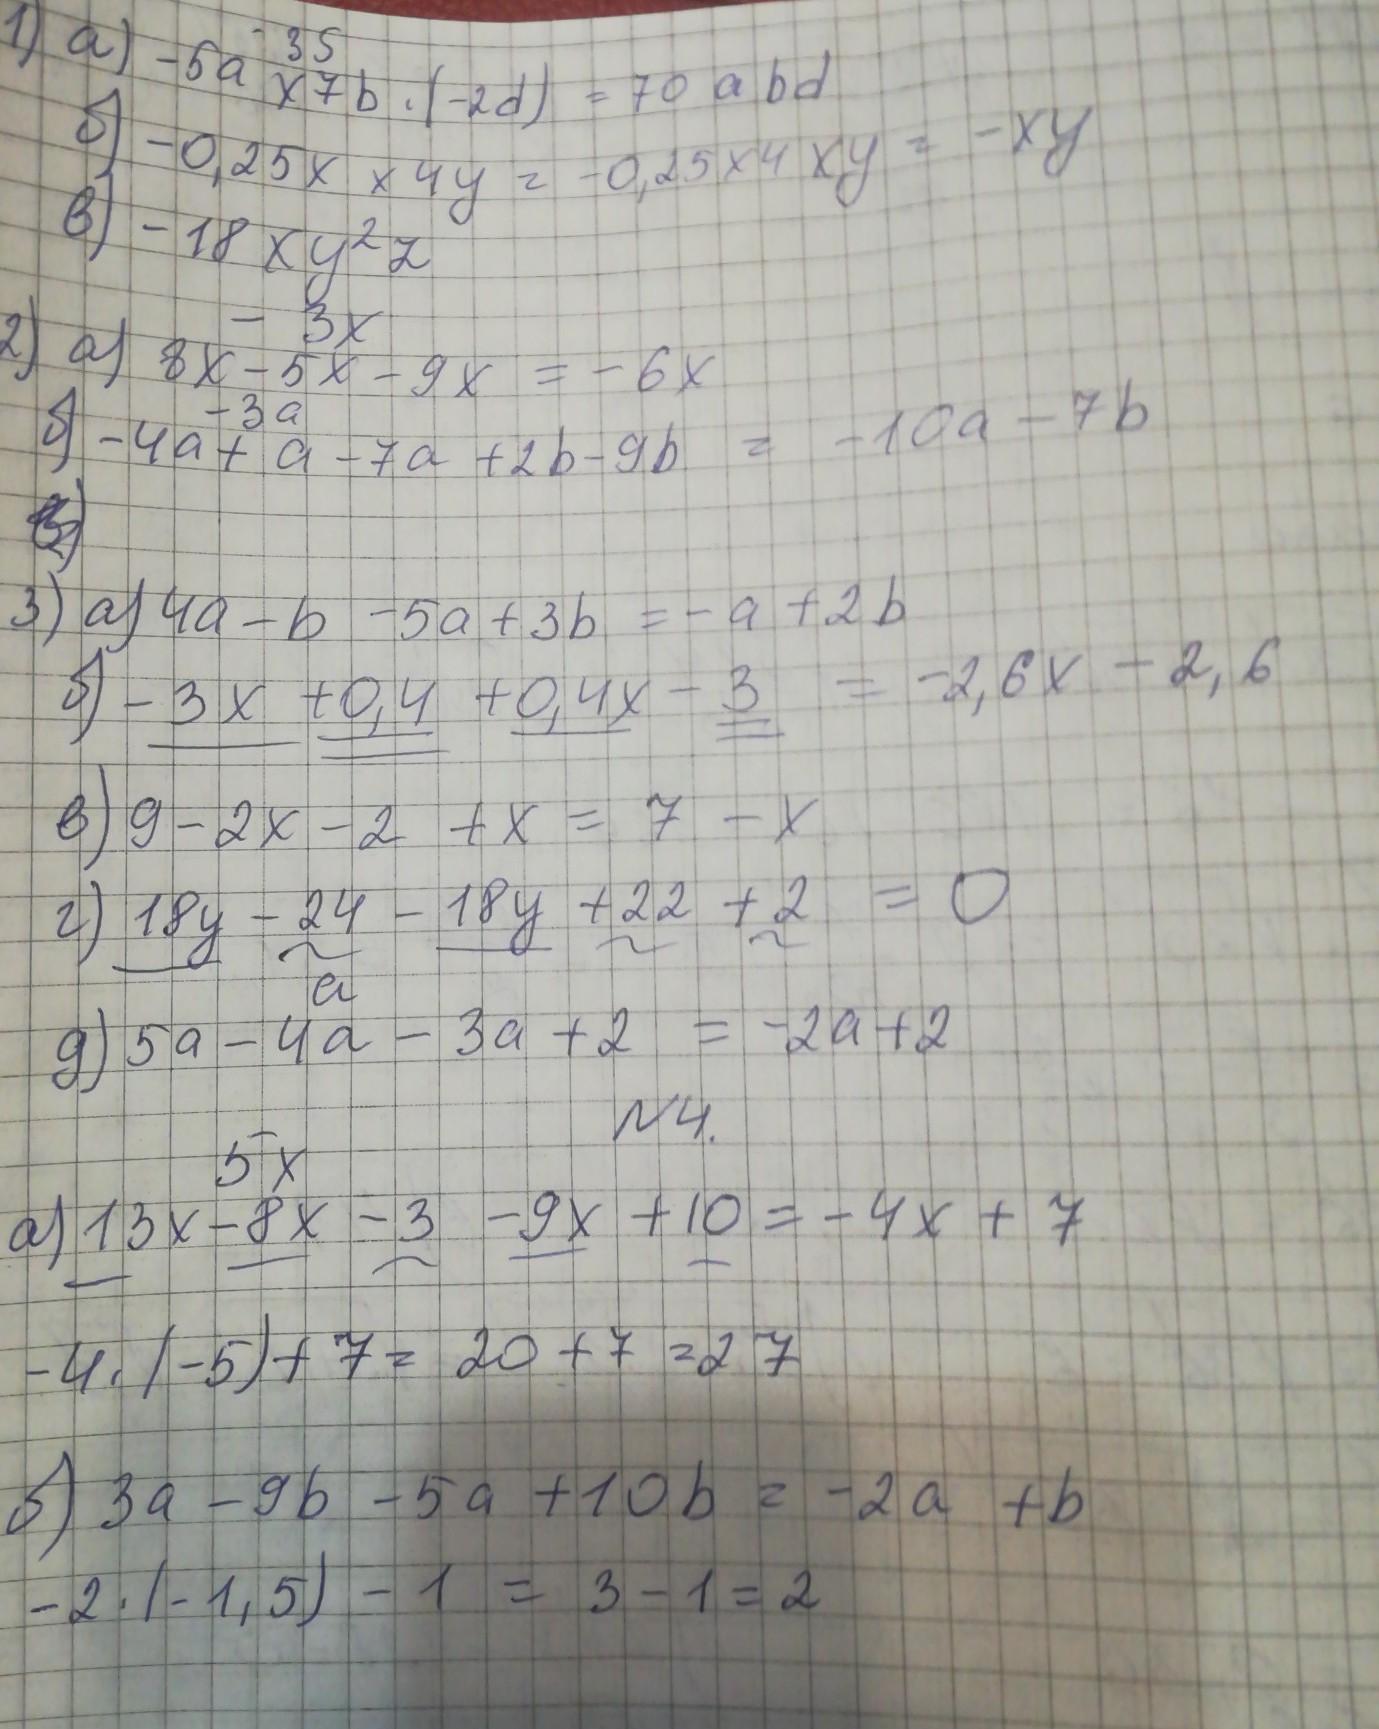 1) а) -5a -35
×7b·(-2d) = 70abd
б) -0,25x × 4y = -0,25×4xy = -xy
в) -18xy²z
- 3x
2) а) 8x-5x-9x = -6x
-3a
б) -4a+a-7a+2b-9b = -10a-7b
3) а) 4a-b-5a+3b = -a+2b
б) -3x+0,4+0,4x-3 = -2,6x-2,6
в) 9-2x-2+x = 7-x
г) 18y-24-18y+22+2 = 0
a
д) 5a-4a-3a+2 = -2a+2
№4.
5x
а) 13x-8x-3-9x+10 = -4x+7
-4·(-5)+7 = 20+7 = 27
б) 3a-9b-5a+10b = -2a+b
-2·(-1,5)-1 = 3-1 = 2